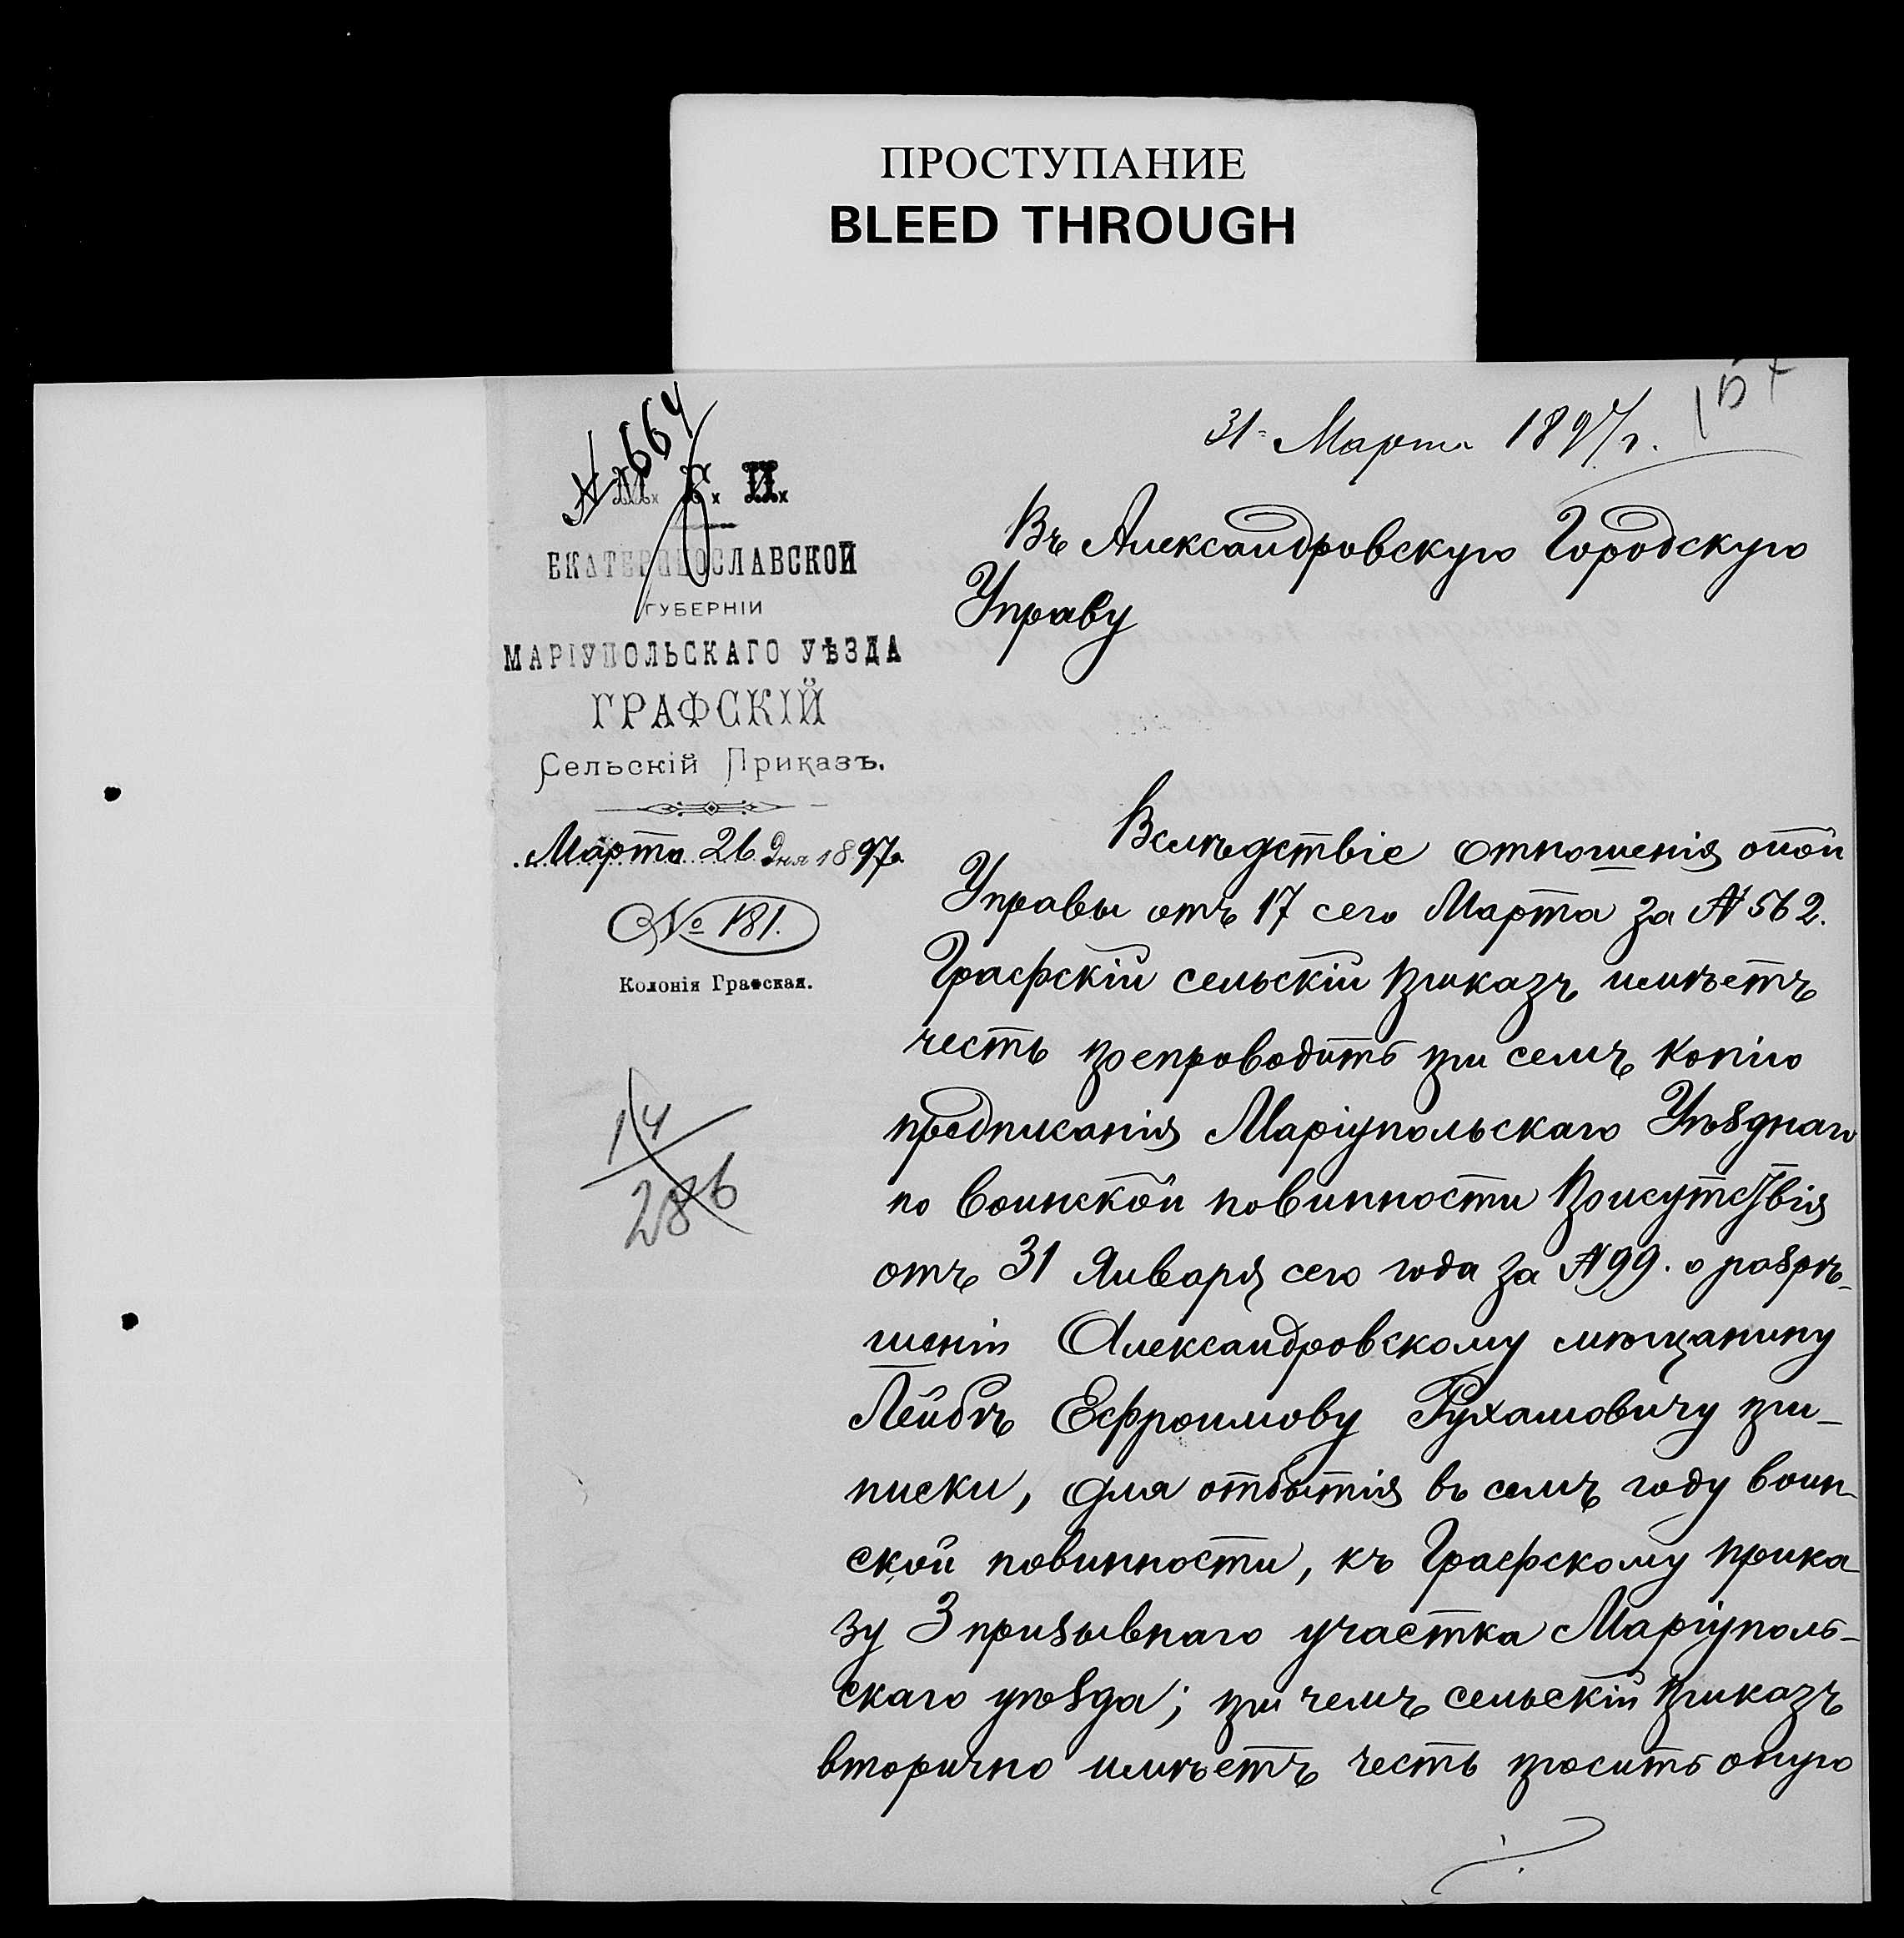 ПРОСТУПАНИЕ
BLEED THROUGH
31 Марта 1897 г.
№ 664
М. Г. И.
ЕКАТЕРИНОСЛАВСКОЙ
ГУБЕРНІИ
МАРІУПОЛЬСКАГО УѢЗДА
ГРАФСКІЙ
Сельскій Приказъ.
Марта 26 дня 1897 г.
№ 181.
Колонія Графская.
14
286
Въ Александровскую Городскую
Управу
Вслѣдствіе отношенія оной
Управы отъ 17 сего Марта за № 562.
Графскій сельскій приказъ имѣетъ
честь препроводить при семъ копію
предписанія Маріупольскаго Уѣзднаго
по воинской повинности Присутствія
отъ 31 Января сего года за № 99. о разрѣ-
шеніи Александровскому мѣщанину
Лейбѣ Ефроимову Рухамовичу при-
писки, для отбытія въ семъ году воин-
ской повинности, къ Графскому прика-
зу 3 призывнаго участка Маріуполь-
скаго уѣзда; при чемъ сельскій приказъ
вторично имѣетъ честь просить оную